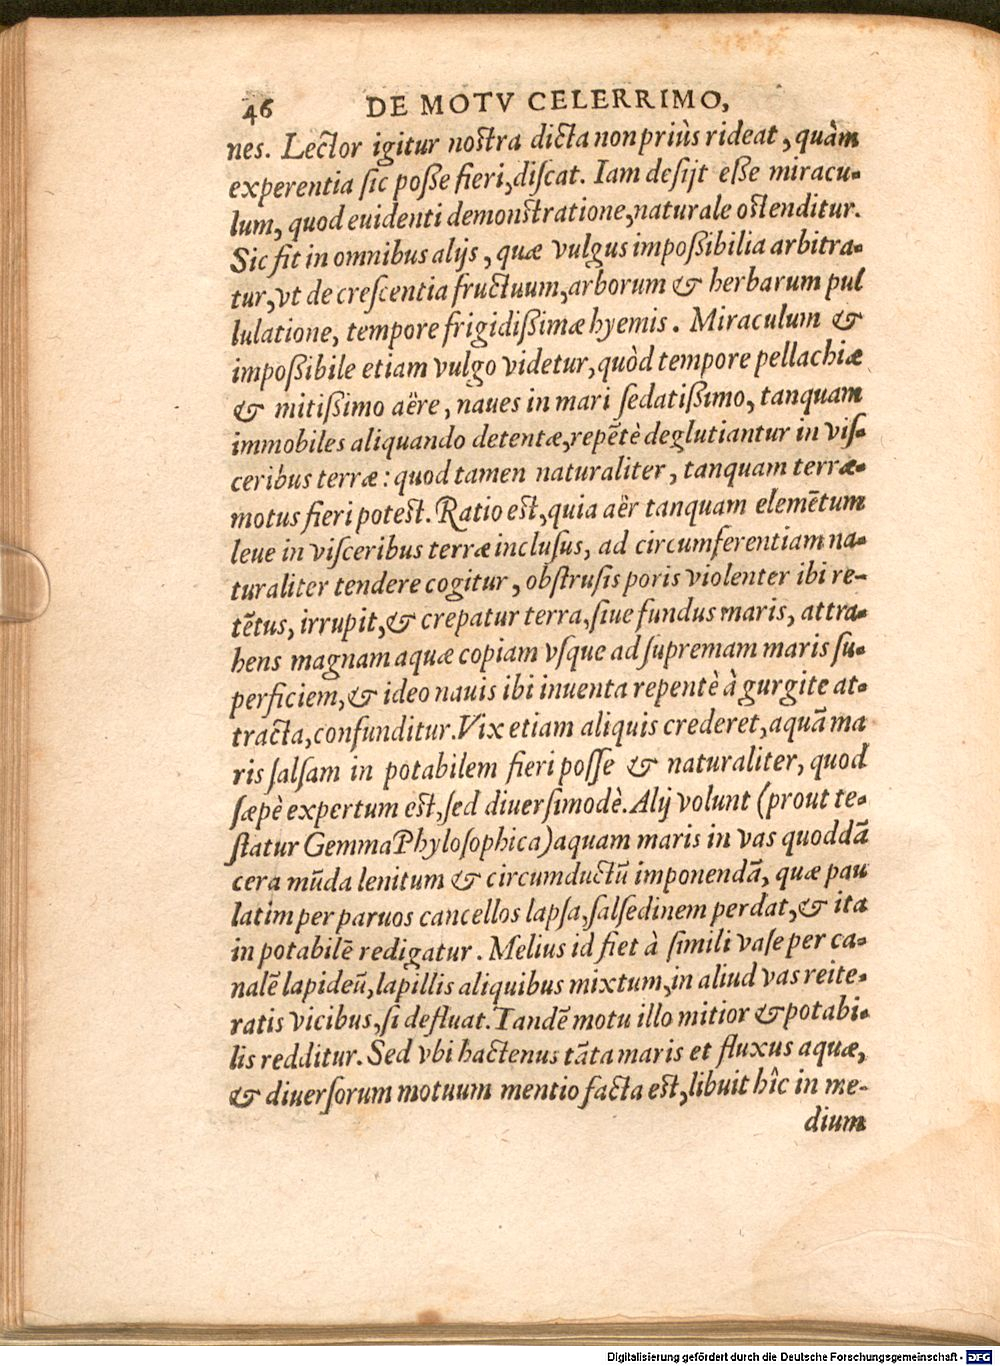 46 DE MOTV CELERRIMO,
nes. Lector igitur nostra dicta non priùs rideat, quàm
experentia sic posse fieri, discat. Iam desijt esse miracu-
lum, quod euidenti demonstratione, naturale ostenditur.
Sic fit in omnibus alijs, quæ vulgus impossibilia arbitra-
tur, vt de crescentia fructuum, arborum & herbarum pul
lulatione, tempore frigidissimæ hyemis. Miraculum &
impossibile etiam vulgo videtur, quòd tempore pellachiæ
& mitissimo aëre, naues in mari sedatissimo, tanquam
immobiles aliquando detentæ, repẽtè deglutiantur in vis-
ceribus terræ: quod tamen naturaliter, tanquam terræ-
motus fieri potest. Ratio est, quia aër tanquam elemẽtum
leue in visceribus terræ inclusus, ad circumferentiam na-
turaliter tendere cogitur, obstrusis poris violenter ibi re-
tẽtus, irrupit, & crepatur terra, siue fundus maris, attra-
hens magnam aquæ copiam vsque ad supremam maris su-
perficiem, & ideo nauis ibi inuenta repentè à gurgite at-
tracta, confunditur. Vix etiam aliquis crederet, aquã ma
ris salsam in potabilem fieri posse & naturaliter, quod
sæpè expertum est, sed diuersimodè. Alij volunt (prout te-
statur Gemma Phylosophica) aquam maris in vas quoddã
cera mũda lenitum & circumductũ imponendã, quæ pau
latim per paruos cancellos lapsa, salsedinem perdat, & ita
in potabilẽ redigatur. Melius id fiet à simili vase per ca-
nalẽ lapideũ, lapillis aliquibus mixtum, in aliud vas reite-
ratis vicibus, si defluat. Tandẽ motu illo mitior & potabi-
lis redditur. Sed vbi hactenus tãta maris et fluxus aquæ,
& diuersorum motuum mentio facta est, libuit hîc in me-
dium
Digitalisierung gefördert durch die Deutsche Forschungsgemeinschaft - DFG